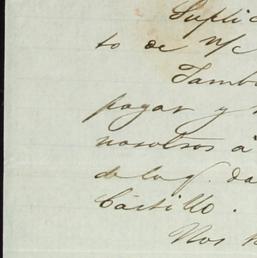 Suplic
to de n/c
Tamb
pagar y
nosotros a
de la q. da
Castillo.
Nos